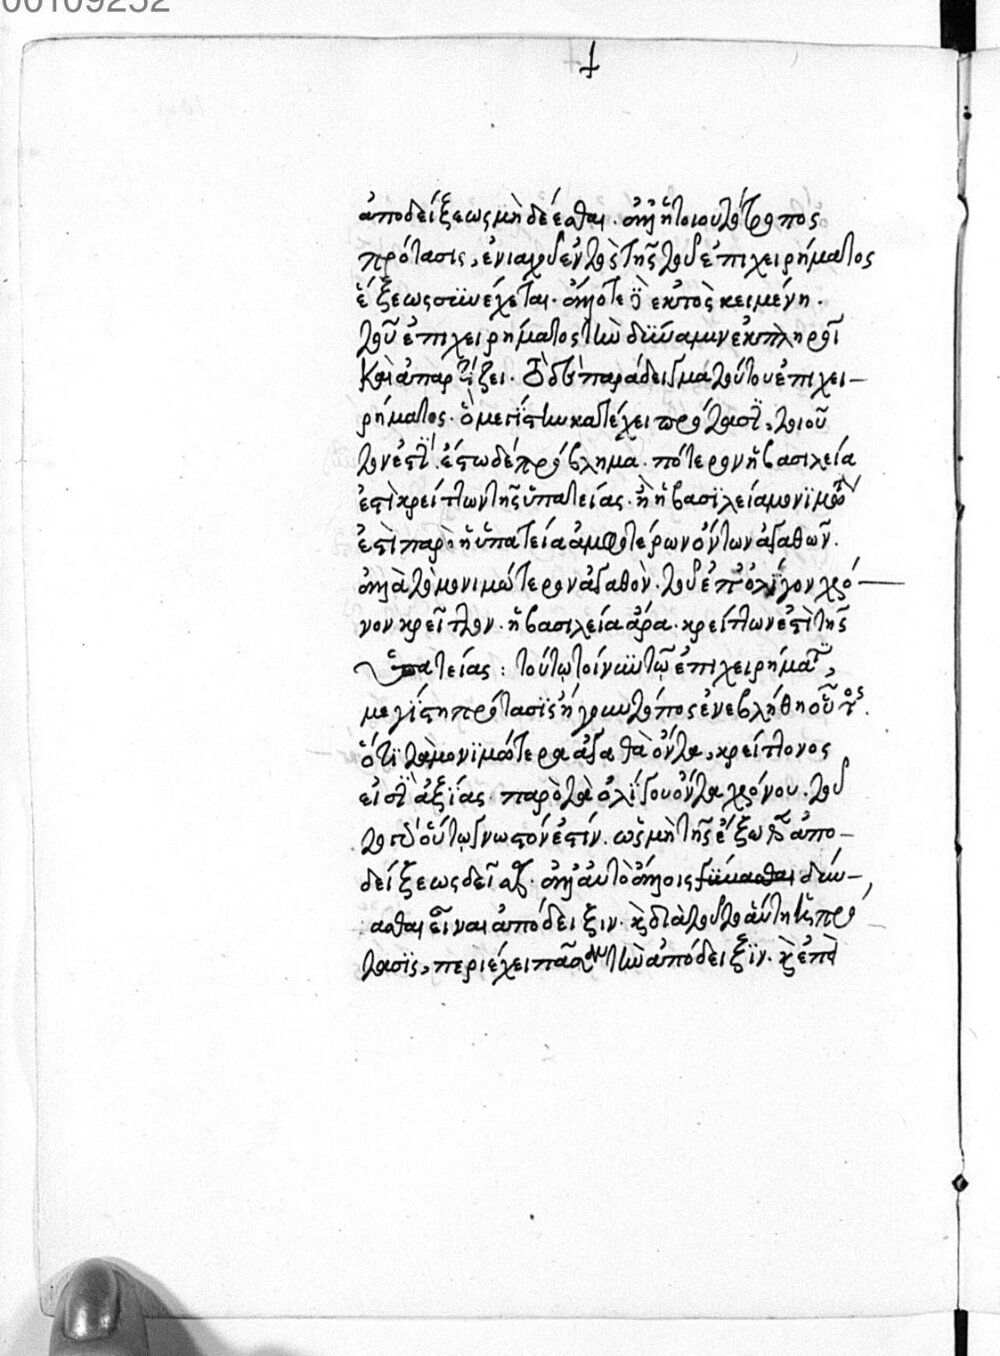 00109252
ἀποδείξεως μὴ δέεσθαι. ἀλλ' ἡ τοιουτότροπος
πρότασις, ἐνιαχοῦ ἐντὸς τῆς τοῦ ἐπιχειρήματος
ἕξεως συνέχεται. ἄλλοτε δὲ ἐκτὸς κειμένη.
τοῦ ἐπιχειρήματος τὴν δύναμιν ἐκπληροῖ
καὶ ἀπαρτίζει. παράδειγμα τούτου ἐπιχει-
ρήματος. ὃ μεγίστην κατέχει πρότασιν, τοιοῦ
τόν ἐστιν. ἔστω δὲ πρόβλημα. πότερον ἡ βασιλεία
ἐστὶ κρείττων τῆς ὑπατείας. ἡ βασιλεία μονιμωτέρα
ἐστὶ παρὸ ἡ ὑπατεία ἀμφοτέρων ὄντων ἀγαθῶν.
ἀλλὰ τὸ μονιμώτερον ἀγαθὸν. τοῦ ἐπ' ὀλίγον χρό-
νον κρεῖττον. ἡ βασιλεία ἄρα. κρείττων ἐστὶ τῆς
ὑπατείας: τούτῳ τοίνυν τῷ ἐπιχειρήματι,
μεγίστη πρότασις ἤγουν τόπος ἐνεβλήθη οὗτος.
ὅτι τὰ μονιμώτερα ἀγαθὰ ὄντα, κρείττονος
εἰσὶν ἀξίας. παρὸ τὰ ὀλίγου ὄντα χρόνου. τοῦ
το δ' οὕτω γνωστόν ἐστίν. ὡς μὴ τῆς ἔξωθεν ἀπο-
δείξεως δεῖσθαι. ἀλλ' αὐτὸ ἄλλοις δύνασθαι δύν-
ασθαι εἶναι ἀπόδειξιν. καὶ διὰ τοῦτο αὕτη ἡ πρό
τασις, περιέχει πᾶσαν τὴν ἀπόδειξιν. καὶ ἐπεὶ